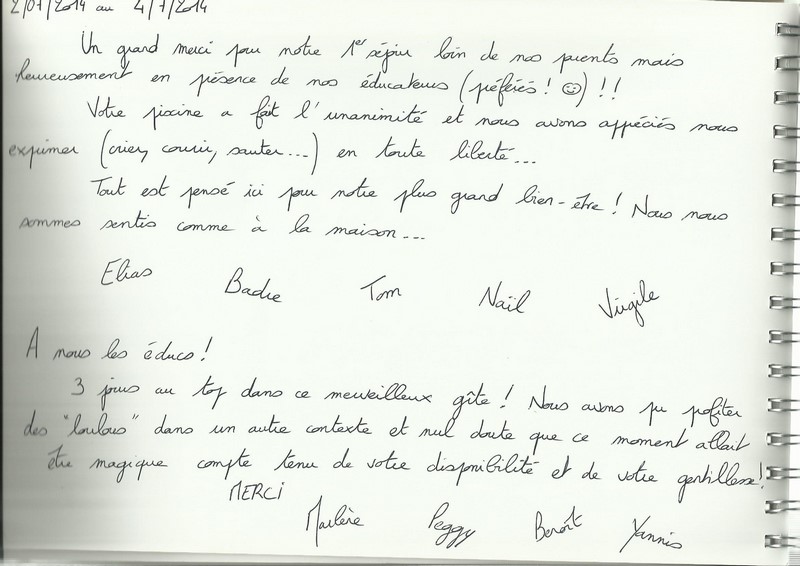 2/07/2014 au 4/7/2014
Un grand merci pour notre 1er séjour loin de nos parents mais
heureusement en présence de nos éducateurs (préférés ! ☺) !!
Votre piscine a fait l'unanimité et nous avons appéciés nous
exprimer (crier, courir, sauter...) en toute liberté...
Tout est pensé ici pour notre plus grand bien-être ! Nous nous
sommes sentis comme à la maison...
Elias Badre Tom Naïl Virgile
A nous les éducs !
3 jours au top dans ce merveilleux gîte ! Nous avons pu profiter
des "loulous" dans un autre contexte et nul doute que ce moment allait
être magique compte tenu de votre disponibilité et de votre gentillesse !
MERCI
Marlère Peggy Benoît Yannis